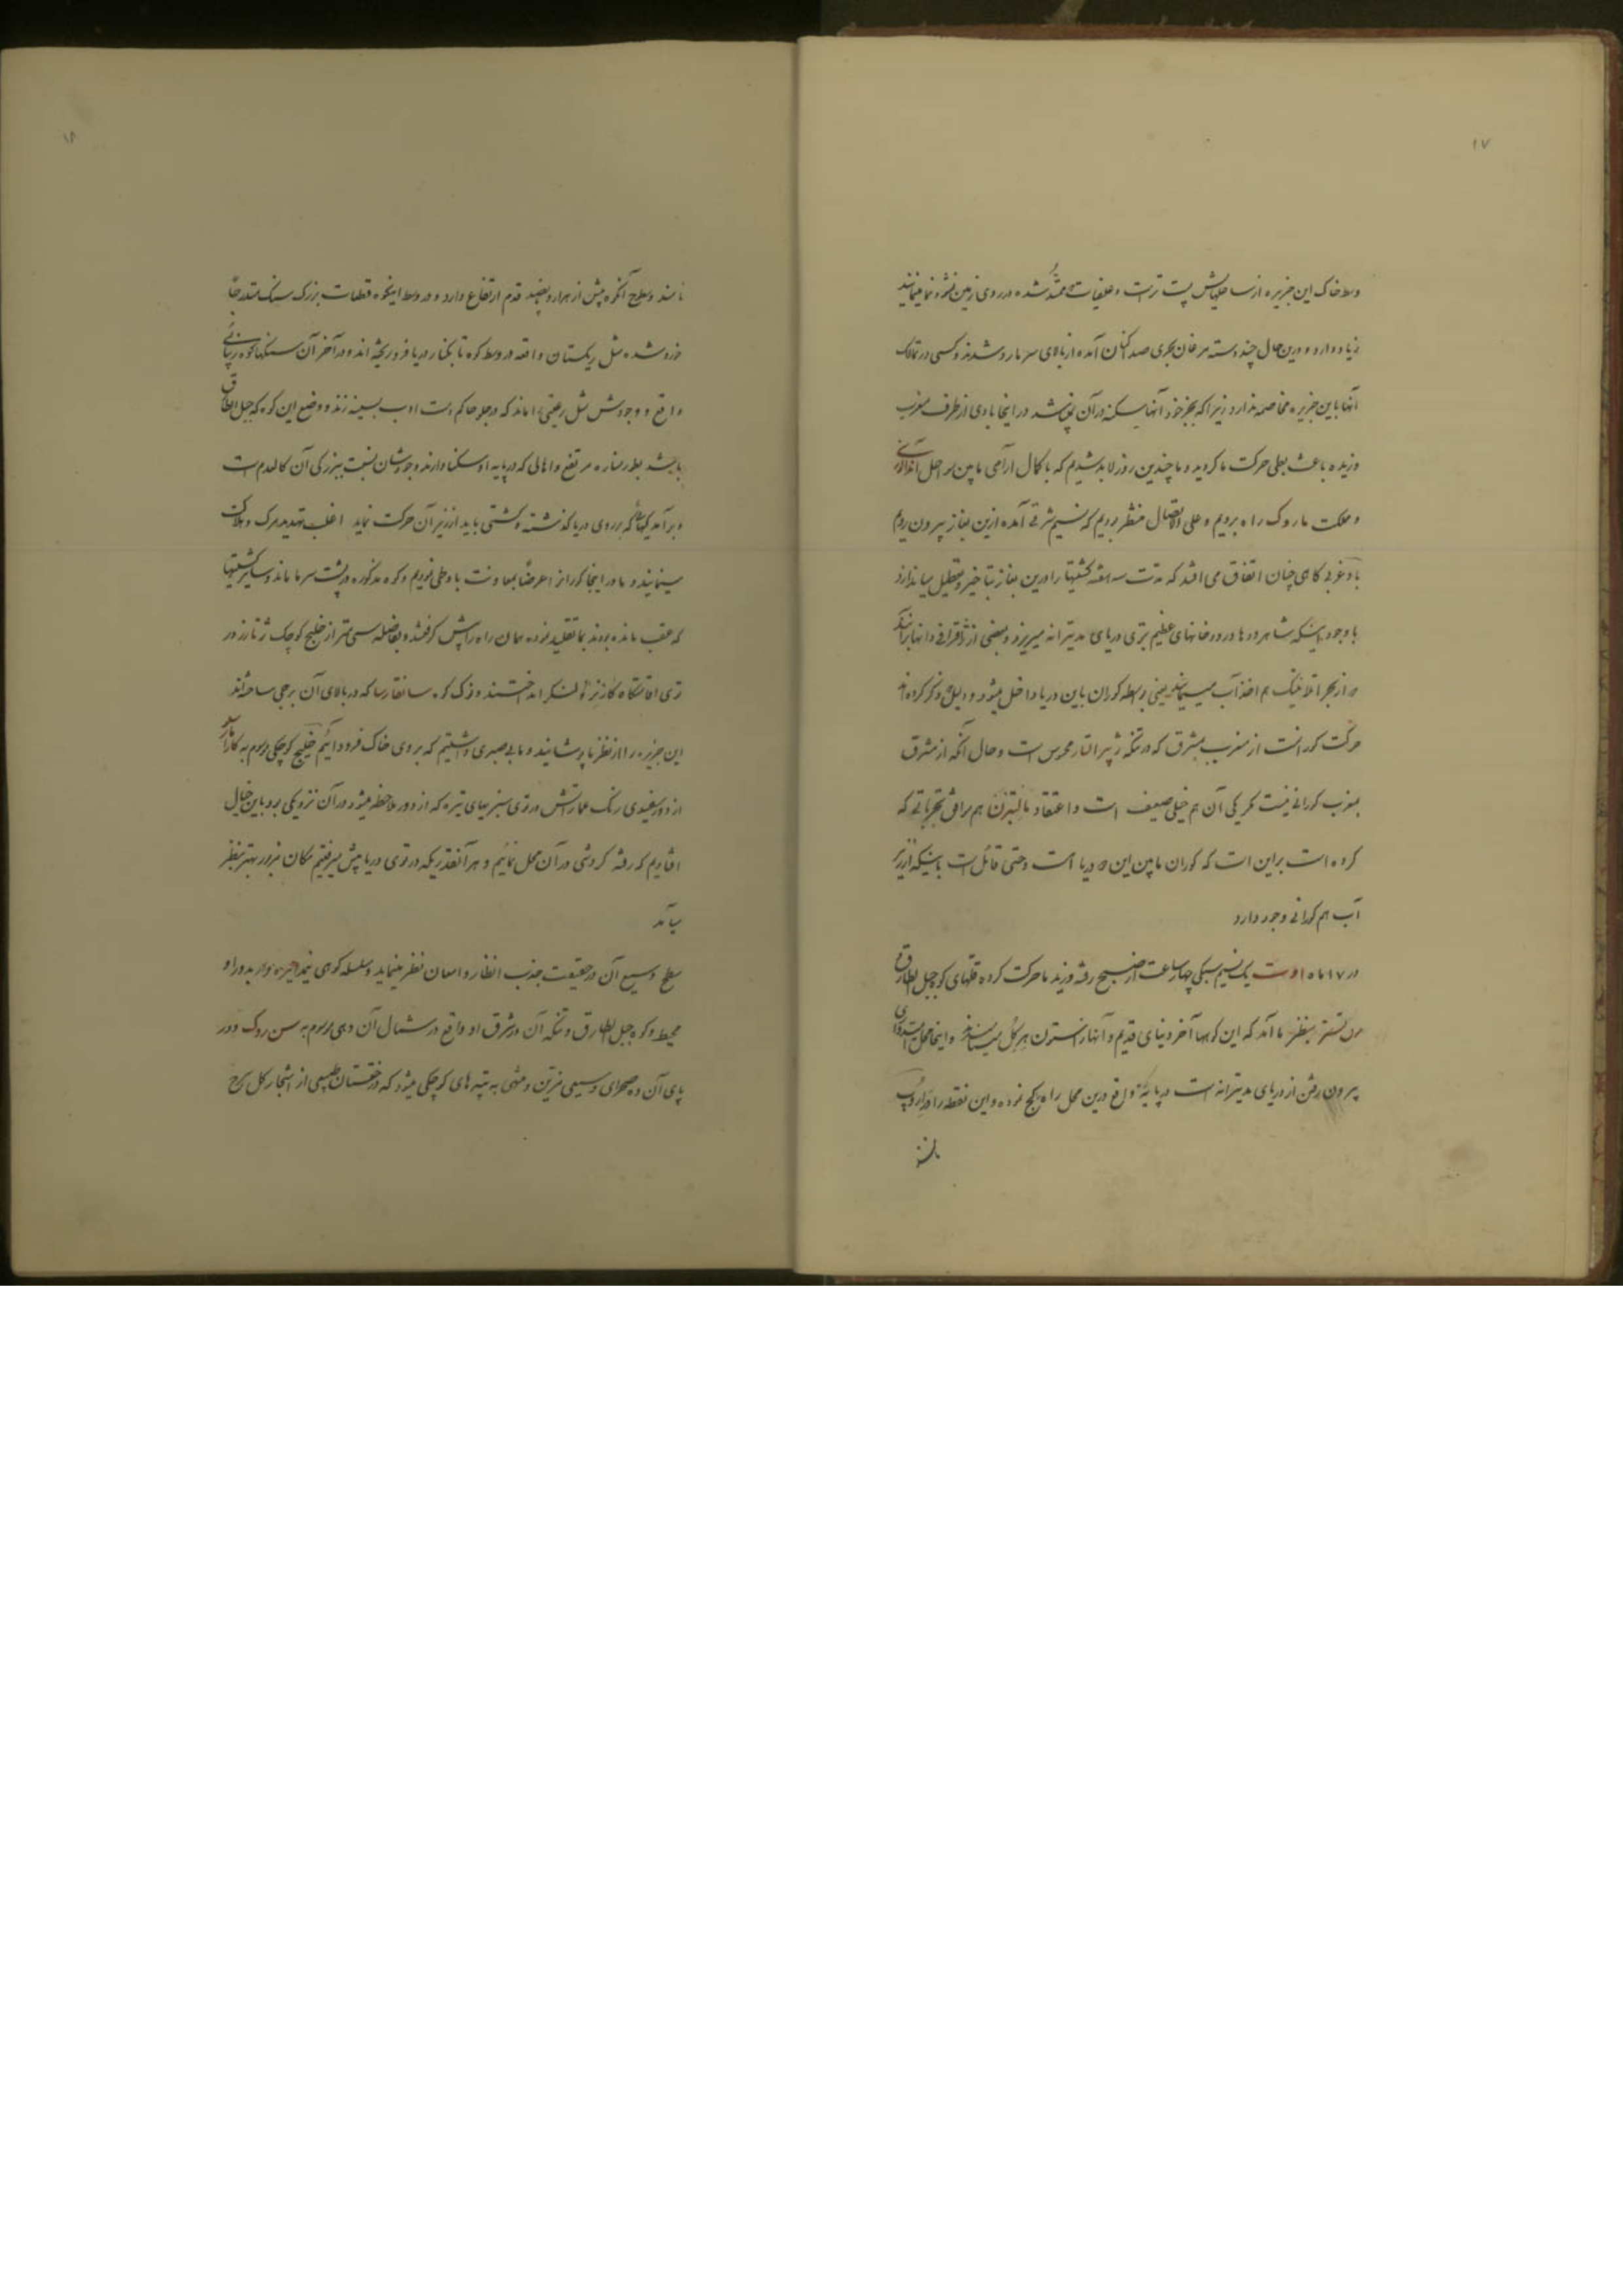 ۱۷
وسط خاک این جزیره از ساحلهایش پست تر است و علفیات شده در روی زمین نشو و نما مینمایند
زیاد دارد و در این حال چند دسته مرغان بحری صدا کنان آمده از بالای سر ما رد شدند و کسی در تملک
آنها باین جزیره مخاصمه ندارد زیرا که بجز خود آنها سکنه در آن در اینجا بادی از طرف مغرب
وزیده باعث بطی حرکت ما گردید و ما چندین روز لابد شدیم که با کمال آرامی مابین سواحل
و مملکت ماروک راه برویم و علی الاتصال منتظر بودیم که نسیم شرقی آمده ازین بغاز بیرون رویم
باد غربی گاهی چنان اتفاق می افتد که مدت سه هفته کشتیها را درین بغاز بتأخیر و تعطیل میاندازد
با وجود اینکه شاهرودها و رودخانهای عظیم توی دریای مدیترانه میریزد و بعضی از
از بحر اتلانتیک هم اخذ آب مینماید یعنی بواسطه کوران باین دریا داخل میشود و دلیل ذکر کرده اند
حرکت کورانست از مغرب بمشرق که در تنکه ژیبرالتار محسوس است و حال آنکه از مشرق
بمغرب کورانی نیست مگر یکی آن هم خیلی ضعیف است و اعتقاد هم موافق تجرباتی که
کرده است براین است که کوران مابین این دو دریا است و حتی قائل است باینکه از زیر
آب هم کورانی وجود دارد
در ۱۷ ماه اوت یک نسیم سبکی چهار ساعت از صبح رفته وزید ما حرکت کرده قلهای کوه جبل الطارق
بنظر ما آمد که این کوهها آخر دنیای قدیم و آنها را ستون هرکل مینامند و اینجا محل
بیرون رفتن از دریای مدیترانه است در پایه واقع درین محل راه کج نموده و این نقطه را
مانند
۱۸
مانند و سطح آنکوه بیش از هزار و پانصد قدم ارتفاع دارد و در وسط اینکوه قطعات بزرک سنک متدرجاً
خرد شده مثل ریکستان واقعه در وسط کوه تا بکنار دریا فرو ریخته اند و در آخر آن سنکها کوه
واقع و وجودش مثل رعیتی را ماند که در جلو حاکم دست ادب بسینه زند و وضع این کوه که جبل الطارق
باشد بطور مناره مرتفع و اهالی که در پایه او سکنا دارند وجودشان نسبت ببزرکی آن کالعدم است
و برآمدکیهائی که بر روی دریا گذشته و کشتی باید از زیر آن حرکت نماید اغلب تهدید مرک و هلاکت
مینمایند و ما در اینجا کوران را عرضاً بمعاونت باد طی نمودیم و کوه مذکوره در پشت سر ما ماند و سایر کشتیها
که عقب مانده بودند بما تقلید نموده همان راه را پیش گرفتند و بفاصله سی متر از خلیج کوچک در
توی اقامتگاه لنگر انداختند و نوک کوه که در بالای آن برجی ساخته اند
این جزیره را از نظر ما پوشانید و ما بی صبری داشتیم که بروی خاک فرود آئیم خلیج کوچکی موسوم به
از دور سفیدی رنک عماراتش در توی سبزیهای تیره که از دور ملاحظه میشود در آن نزدیکی بود باین خیال
افتادیم که رفته گردشی در آن محل نمائیم و هر آنقدریکه در توی دریا پیش میرفتیم مکان مزبور بهتر بنظر
میآمد
سطح وسیع آن در حقیقت جذب انظار و امعان نظر مینماید و سلسله کوهی نیم دایره وار بدور او
محیط و کوه جبل الطارق و تنکه آن در شرق او واقع در شمال آن دهی موسوم به سن روک و در
پای آن ده صحرای وسیعی مزین و منتهی به تپه های کوچکی میشود که درختستان طبیعی از اشجار